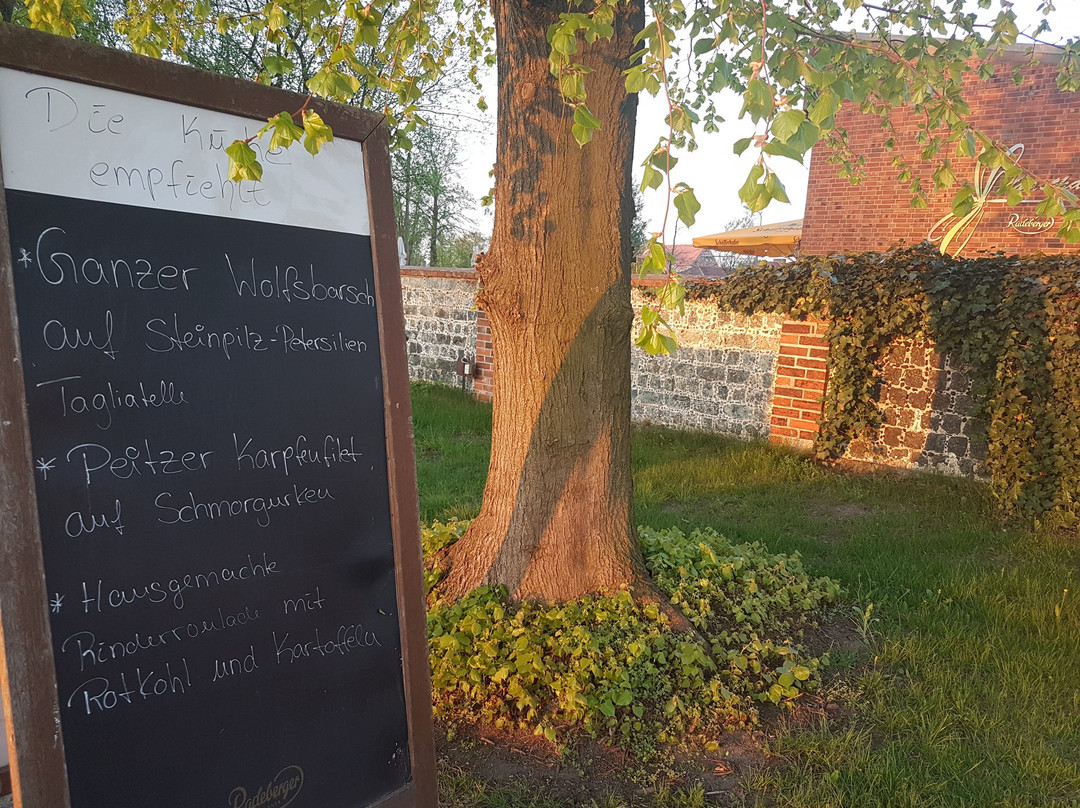 Die Küche
empfiehlt
* Ganzer Wolfsbarsch
auf Steinpilz-Petersilien
Tagliatelle
* Peitzer Karpfenfilet
auf Schmorgurken
* Hausgemachte
Rinderroulade mit
Rotkohl und Kartoffeln
Radeberger
Schöfferhofer
Radeberger